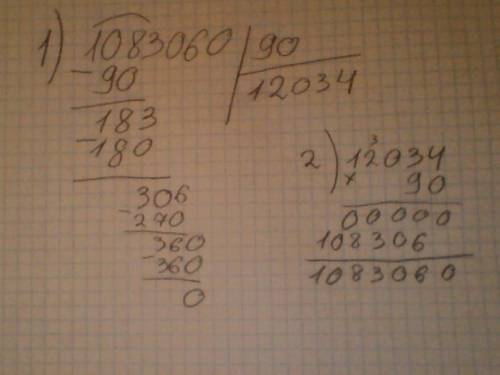 1) 1083060 | 90
- 90
12034
183
- 180
306
- 270
360
- 360
0
2) 12034
3
× 90
00000
108306
1083060